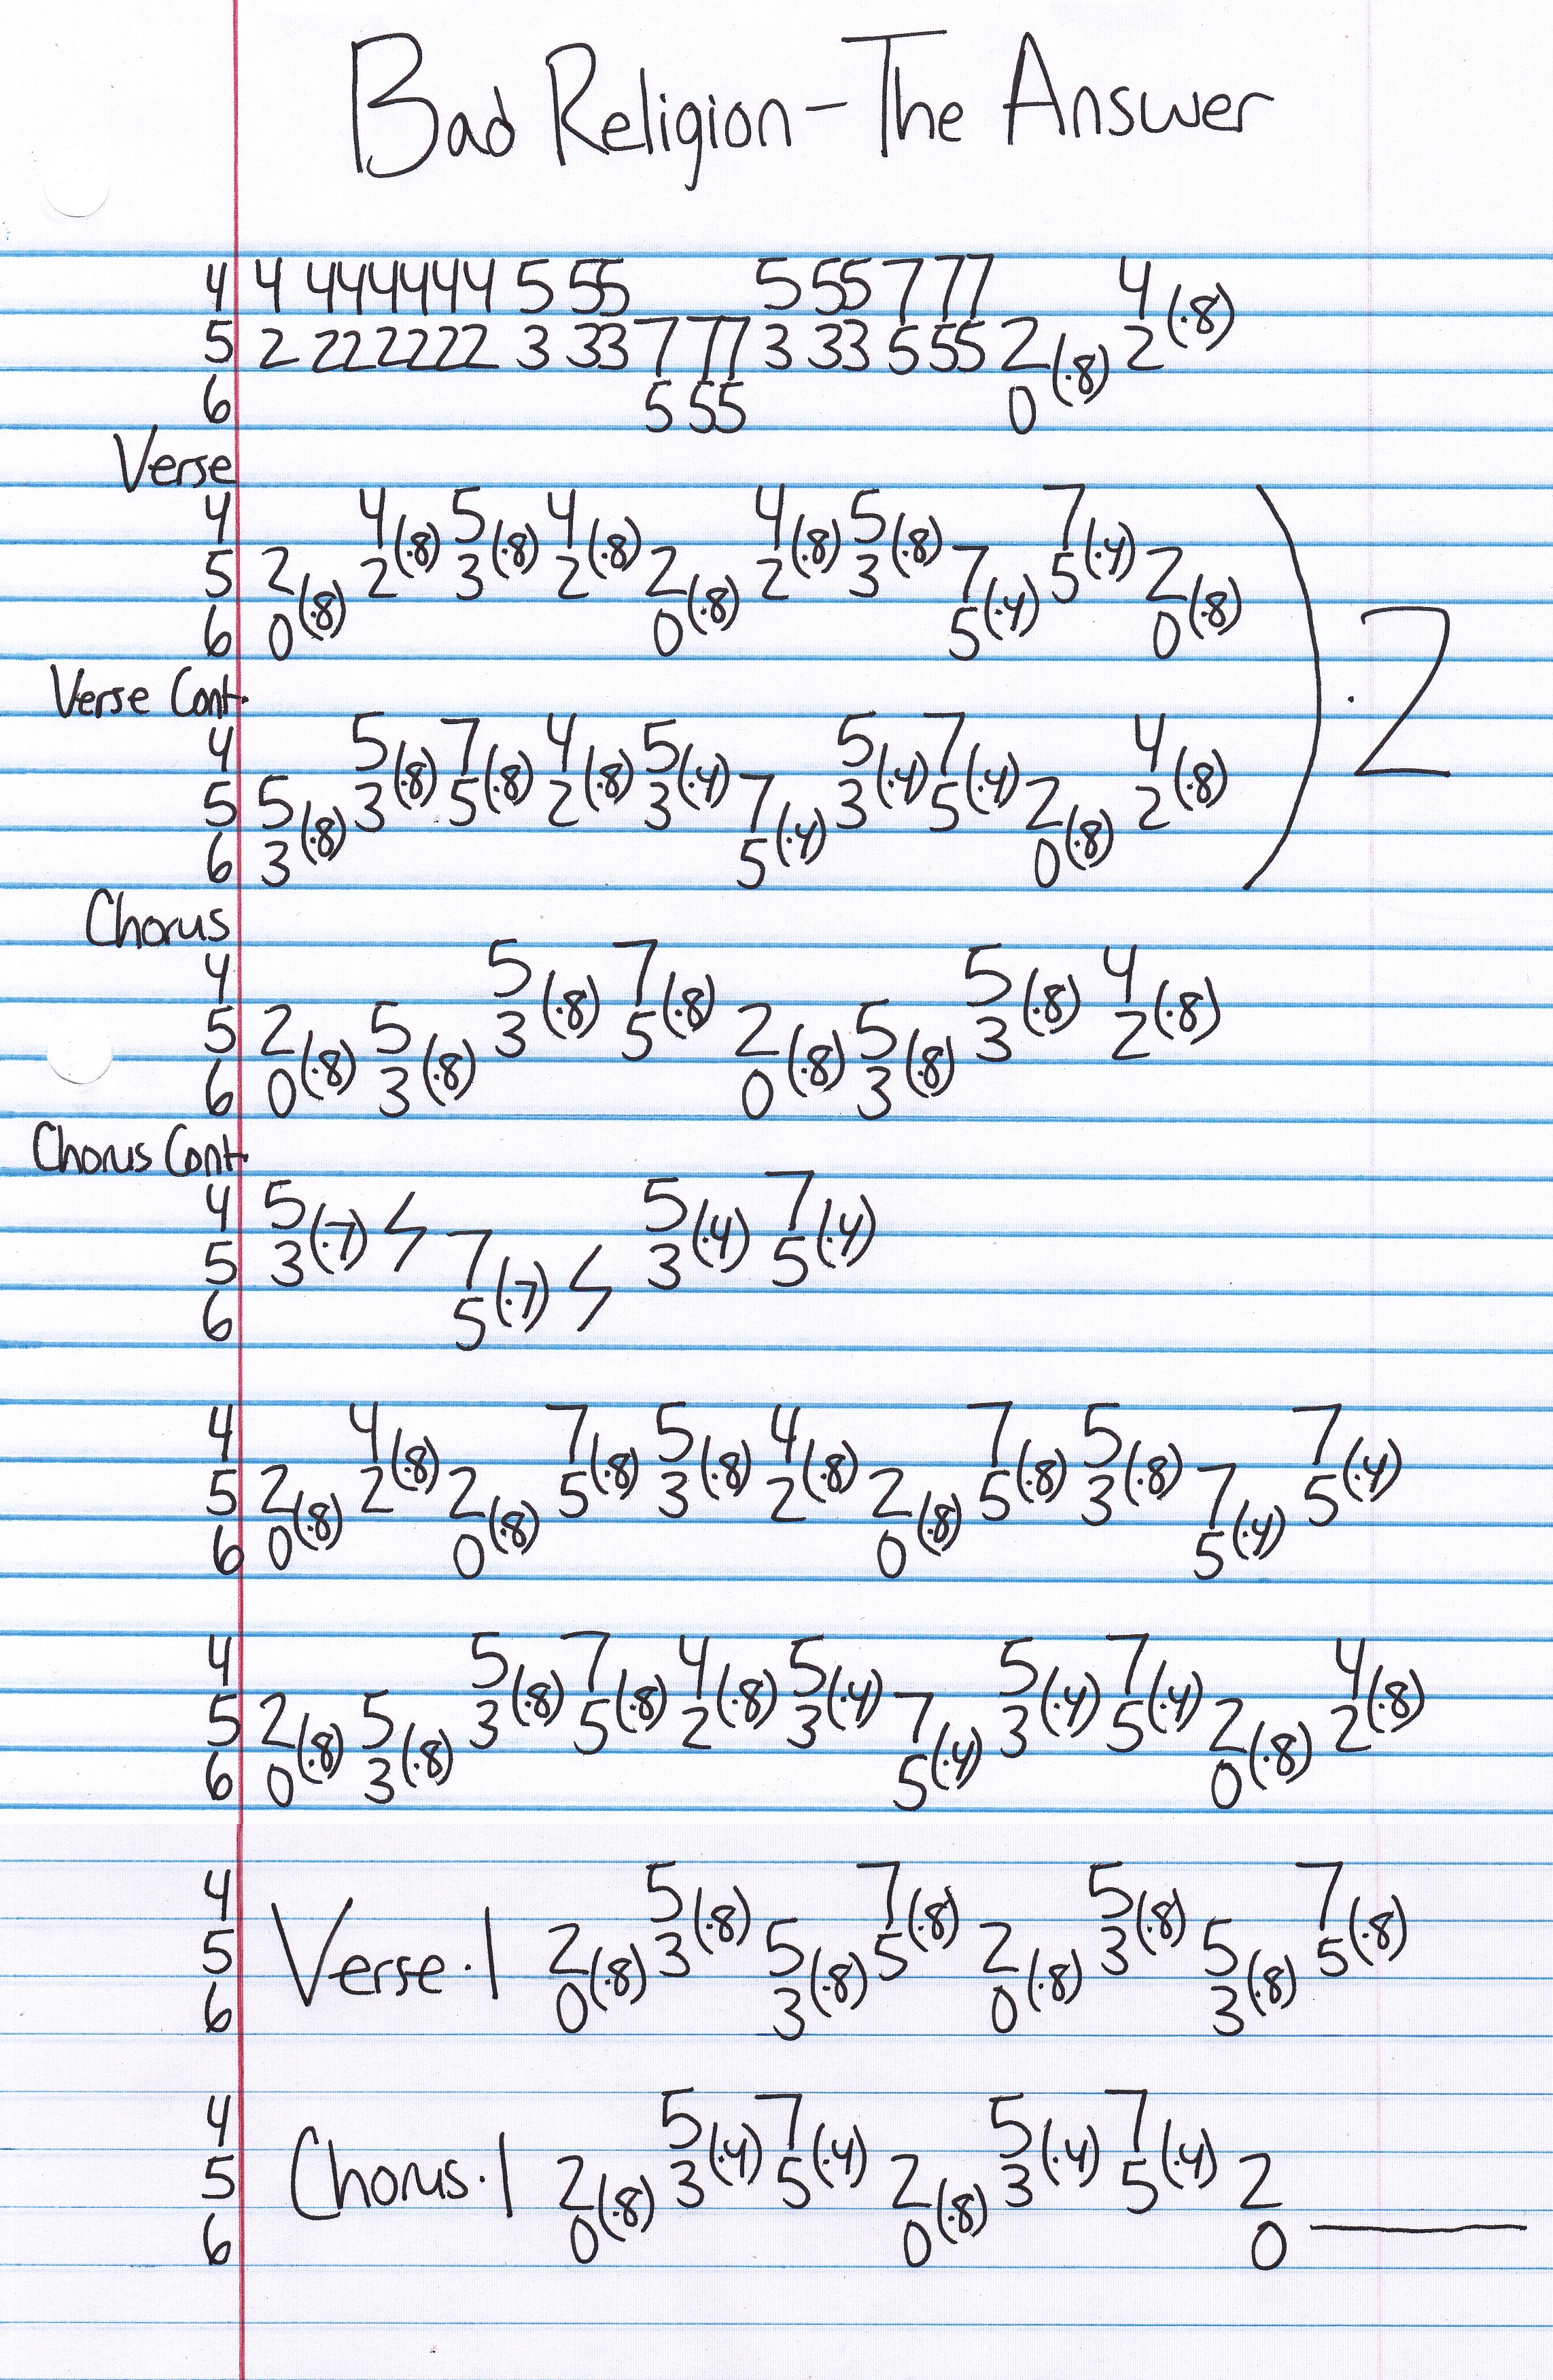 Bad Religion - The Answer
4 4 444444 5 55 5 55 7 77 4 (.8)
5 2 222222 3 33 7 77 3 33 5 55 2 (.8) 2
6 5 55 0
Verse
4 4 (.8) 5 (.8) 4 (.8) 4 (.8) 5 (.8) 7 (.4)
5 2 (.8) 2 3 2 2 (.8) 2 3 7 (.4) 5 2 (.8)
6 0 0 5 0
) . 2
Verse Cont.
4 5 (.8) 7 (.8) 4 (.8) 5 (.4) 5 (.4) 7 (.4) 4 (.8)
5 5 (.8) 3 5 2 3 7 (.4) 3 5 2 (.8) 2
6 3 5 0
Chorus
4 5 (.8) 7 (.8) 5 (.8) 4 (.8)
5 2 (.8) 5 (.8) 3 5 2 (.8) 5 (.8) 3 2
6 0 3 0 3
Chorus Cont.
4 5 (.7) 5 (.4) 7 (.4)
5 3 7 (.7) 3 5
6 5
4 4 (.8) 7 (.8) 5 (.8) 4 (.8) 7 (.8) 5 (.8) 7 (.4)
5 2 (.8) 2 2 (.8) 5 3 2 2 (.8) 5 3 7 (.4) 5
6 0 0 0 5
4 5 (.8) 7 (.8) 4 (.8) 5 (.4) 5 (.4) 7 (.4) 4 (.8)
5 2 (.8) 5 (.8) 3 5 2 3 7 (.4) 3 5 2 (.8) 2
6 0 3 5 0
4 5 (.8) 7 (.8) 5 (.8) 7 (.8)
5 Verse . 1 2 (.8) 3 5 (.8) 5 2 (.8) 3 5 (.8) 5
6 0 3 0 3
4 5 (.4) 7 (.4) 5 (.4) 7 (.4)
5 Chorus . 1 2 (.8) 3 5 2 (.8) 3 5 2
6 0 0 0